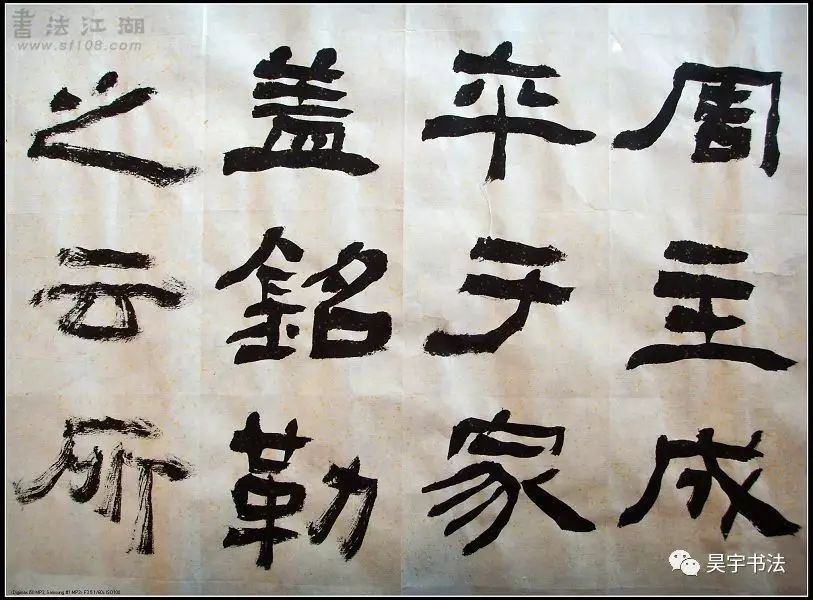 書法江湖
www.sf108.com
周主成
卒于家
盖銘勒
之云所
昊宇书法